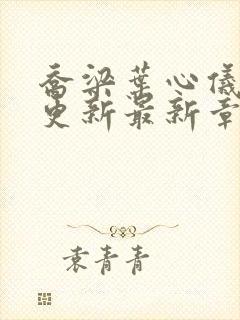 乔梁葉心儀
更新最新章
袁青青